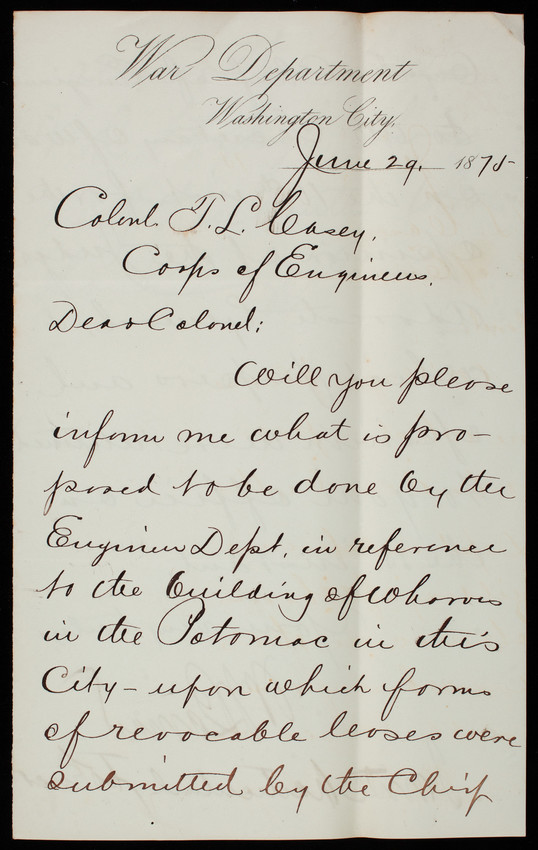 War Department
Washington City.
June 29, 1875
Colonl. T. L. Casey,
Corps of Engineers.
Dear Colonel:
Will you please
inform me what is pro-
posed to be done by the
Engineer Dept. in reference
to the building of Wharves
in the Potomac in this
City - upon which forms
of revocable leases were
submitted by the Chief